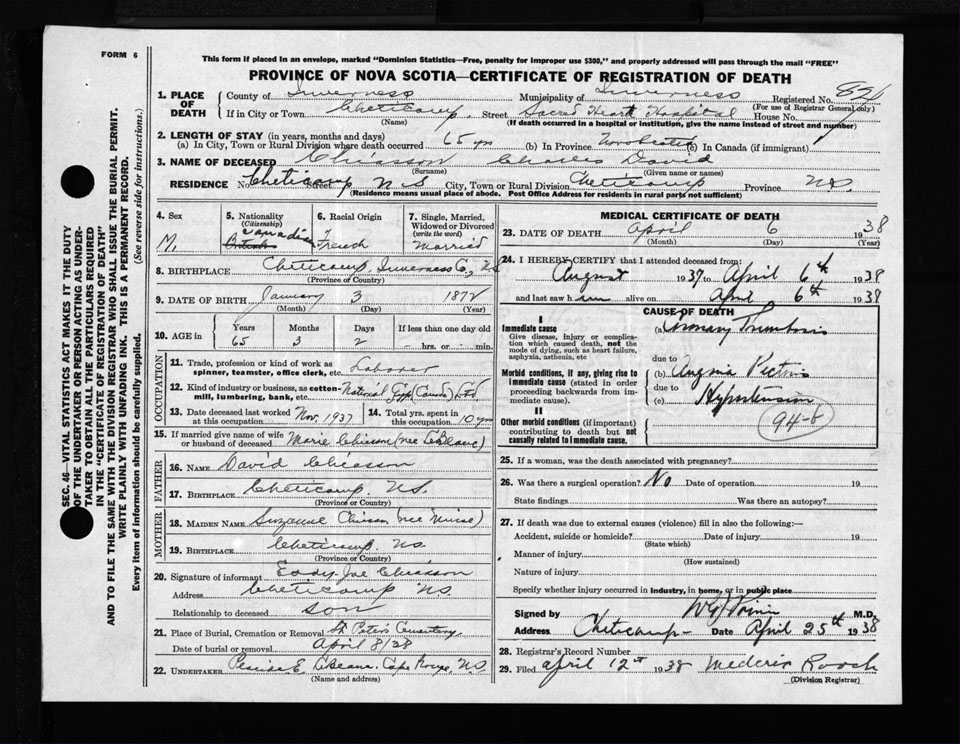 FORM 6
This form if placed in an envelope, marked "Dominion Statistics—Free, penalty for improper use $300," and properly addressed will pass through the mail "FREE"
PROVINCE OF NOVA SCOTIA—CERTIFICATE OF REGISTRATION OF DEATH
SEC. 46—VITAL STATISTICS ACT MAKES IT THE DUTY
OF THE UNDERTAKER OR PERSON ACTING AS UNDER-
TAKER TO OBTAIN ALL THE PARTICULARS REQUIRED
IN THE "CERTIFICATE OF REGISTRATION OF DEATH"
AND TO FILE THE SAME WITH THE DIVISION REGISTRAR WHO SHALL ISSUE THE BURIAL PERMIT.
WRITE PLAINLY WITH UNFADING INK. THIS IS A PERMANENT RECORD.
Every item of information should be carefully supplied. (See reverse side for instructions.)
1. PLACE OF DEATH County of Inverness Municipality of Inverness Registered No.
(For use of Registrar General only)
If in City or Town Cheticamp. Street Sacred Heart Hospital House No.
(Name) (If death occurred in a hospital or institution, give the name instead of street and number)
2. LENGTH OF STAY (in years, months and days)
(a) In City, Town or Rural Division where death occurred 65 yrs (b) In Province Nova Scotia (c) In Canada (if immigrant)
3. NAME OF DECEASED Chiasson Charles David
(Surname) (Given name or names)
RESIDENCE No. Cheticamp N S Street City, Town or Rural Division Cheticamp Province N.S.
(Residence means usual place of abode. Post Office Address for residents in rural parts not sufficient)
4. Sex 5. Nationality (Citizenship) 6. Racial Origin 7. Single, Married, Widowed or Divorced (write the word)
M. Canadian British French Married
8. BIRTHPLACE Cheticamp Inverness Co, N.S
(Province or Country)
9. DATE OF BIRTH January 3 1872
(Month) (Day) (Year)
10. AGE in Years Months Days If less than one day old
65 3 2 hrs. or min.
OCCUPATION
11. Trade, profession or kind of work as spinner, teamster, office clerk, etc. Laborer
12. Kind of industry or business, as cotton-mill, lumbering, bank, etc. National Gyp (Canada) Ltd
13. Date deceased last worked at this occupation Nov. 1937 14. Total yrs. spent in this occupation 10 yrs
15. If married give name of wife or husband of deceased Marie Chiasson (nee LeBlanc)
FATHER
16. NAME David Chiasson
17. BIRTHPLACE Cheticamp. N.S.
(Province or Country)
MOTHER
18. MAIDEN NAME Suzanne Chiasson (nee
19. BIRTHPLACE Cheticamp. N.S.
(Province or Country)
20. Signature of informant Eddy-Joe Chiasson
Address Cheticamp N.S.
Relationship to deceased son
21. Place of Burial, Cremation or Removal St Peter's Cemetery
Date of burial or removal April 8/38
22. UNDERTAKER N.S.
(Name and address)
MEDICAL CERTIFICATE OF DEATH
23. DATE OF DEATH April 6 1938
(Month) (Day) (Year)
24. I HEREBY CERTIFY that I attended deceased from:
August 1937 to April 6th 1938
and last saw him alive on April 6th 1938
CAUSE OF DEATH
I
Immediate cause
Give disease, injury or complication which caused death, not the mode of dying, such as heart failure, asphyxia, asthenia, etc
(a) Coronary Thrombosis
due to
Morbid conditions, if any, giving rise to immediate cause (stated in order proceeding backwards from immediate cause).
(b) Angina Pectoris
due to
(c) Hypertension
94-b
II
Other morbid conditions (if important) contributing to death but not causally related to immediate cause.
25. If a woman, was the death associated with pregnancy?
26. Was there a surgical operation? No Date of operation 19
State findings Was there an autopsy?
27. If death was due to external causes (violence) fill in also the following:—
Accident, suicide or homicide? Date of injury 19
(State which)
Manner of injury
(How sustained)
Nature of injury
Specify whether injury occurred in Industry, in home, or in public place
Signed by M.D.
Address Cheticamp Date April 25th 1938
28. Registrar's Record Number
29. Filed April 12th 1938 Mederic Roach
(Division Registrar)